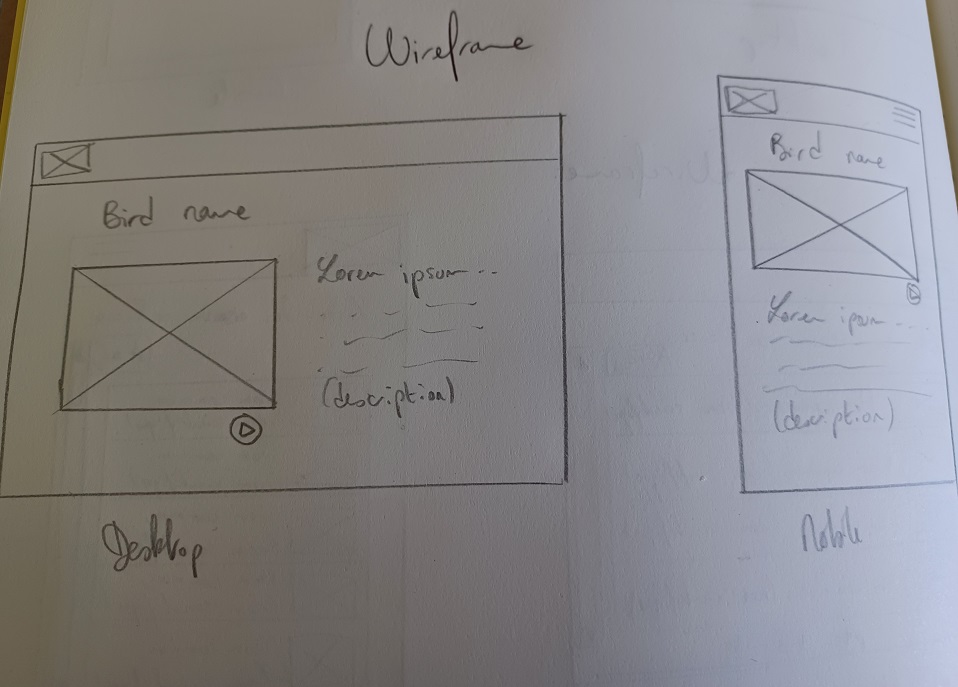 Wireframe
Bird name
Lorem ipsum --
(description)
Desktop
Bird name
Lorem ipsum - -
(description)
Mobile